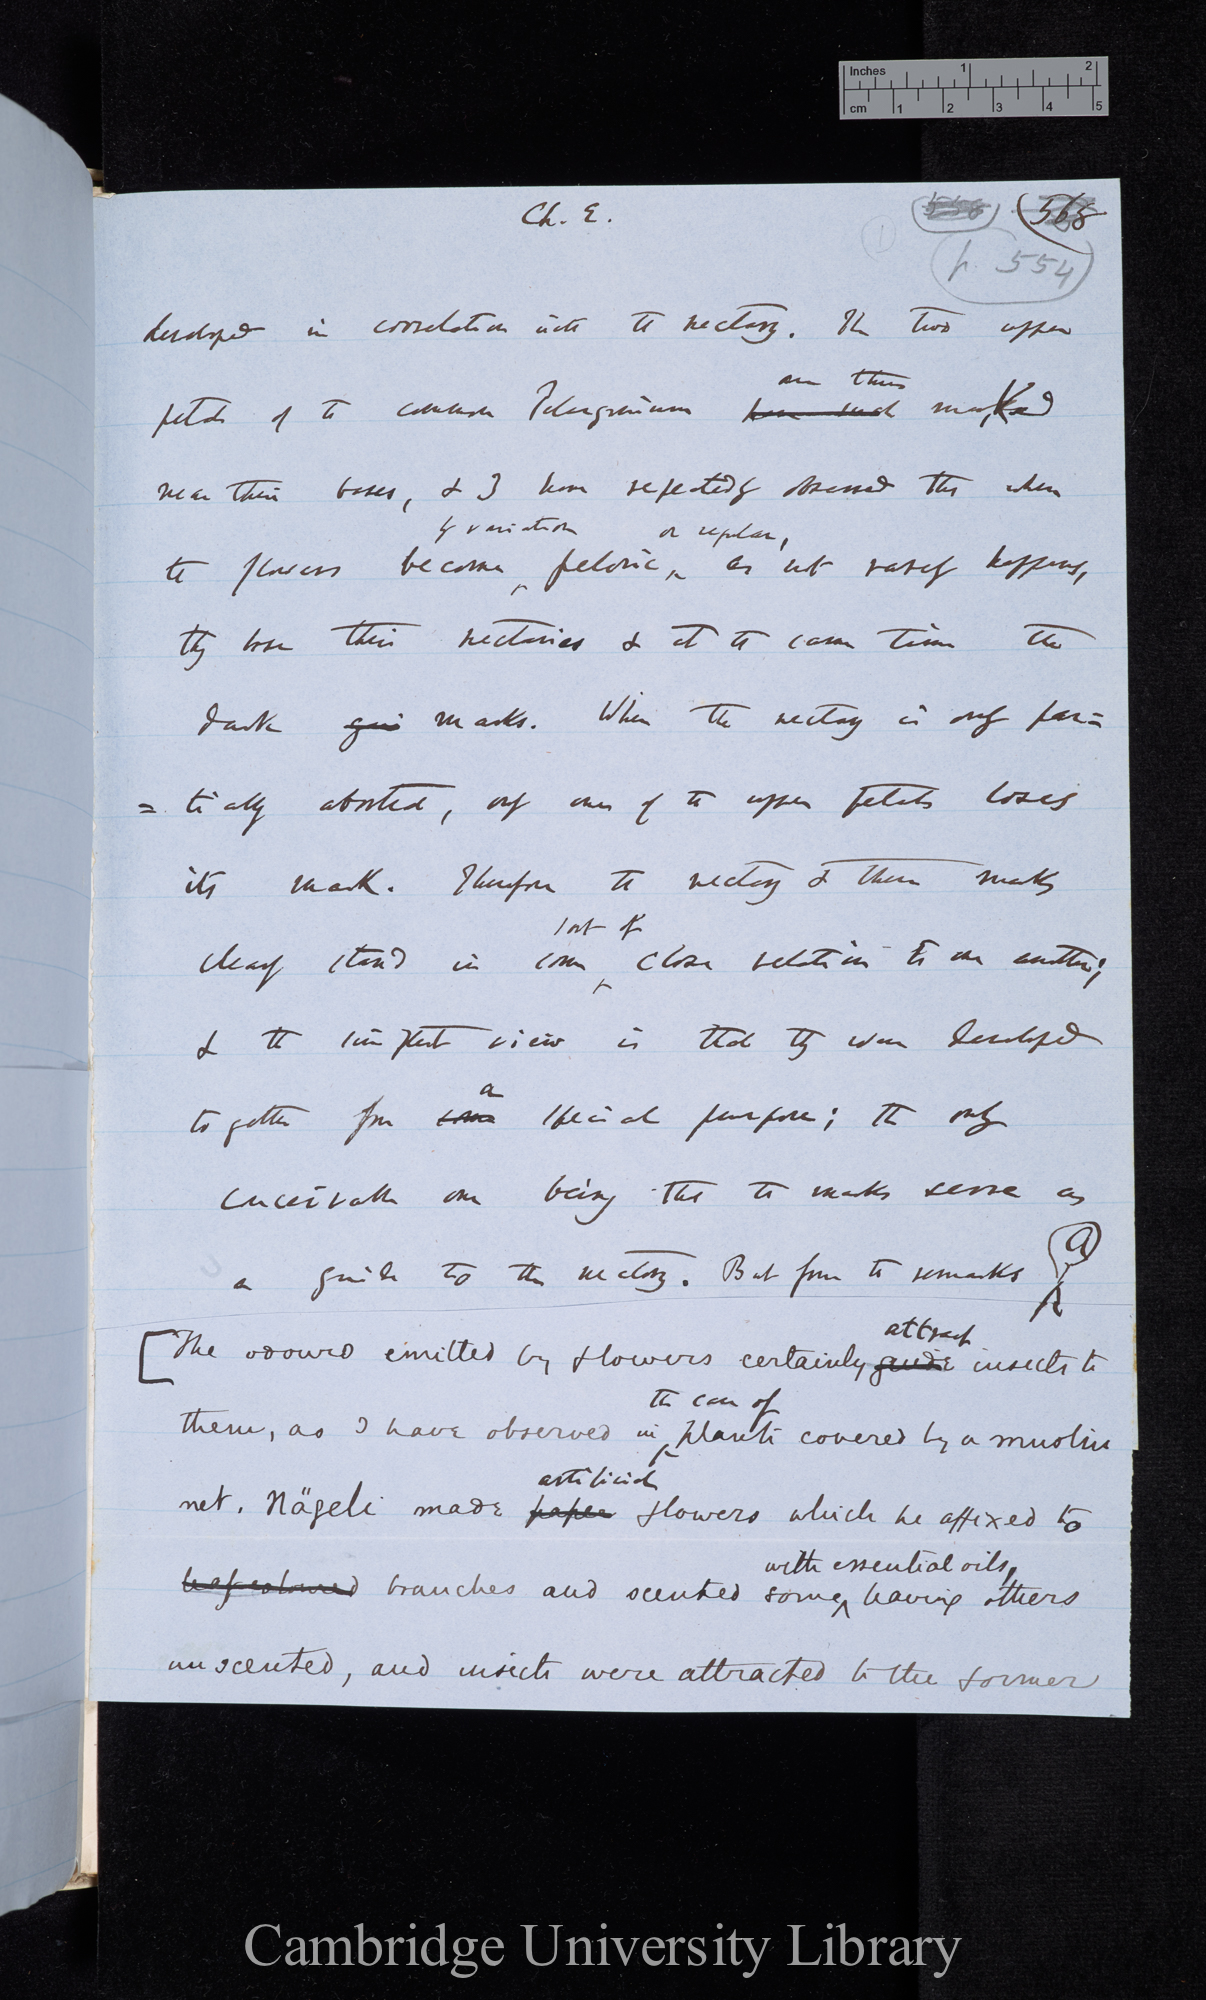 Inches 1 2
cm 1 2 3 4 5
Ch. E.
568
1
p. 554
developed in correlation with the nectary. The two upper
are thus
petals of the common Pelargonium have such marked
near their bases, & I have repeatedly observed that when
by variation or regular,
the flowers become peloric, as not rarely happens,
they lose their nectaries & at the same time the
dark gui marks. When the nectary is only par=
=tially aborted, only one of the upper petals loses
its mark. Therefore the nectary & these marks
sort of
clearly stand in some close relation to one another;
& the simplest view is that they were developed
a
together for some special purpose; the only
conceivable one being that the marks serve as
a guide to the nectary. But from the remarks
a
[The odours emitted by flowers certainly guide insects to
attract
them, as I have observed in plants covered by a muslin
the case of
net. Nägeli made paper flowers which he affixed to
artificial
leaf-coloured branches and scented some, leaving others
with essential oils,
unscented, and insects were attracted to the former
Cambridge University Library